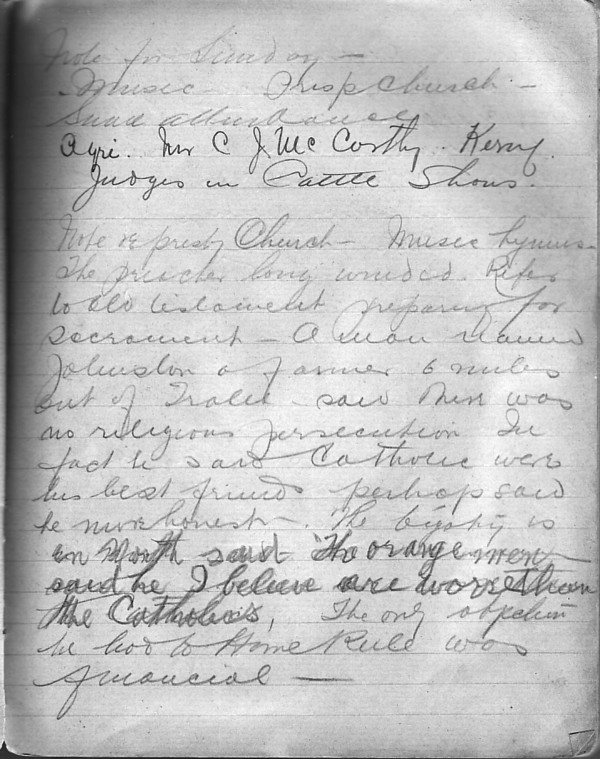 Note for Sunday —
Music Presp Church —
Small attendance
Agri. Mr C J McCarthy. Kerry.
Judges in Cattle Shows.
Note re presby Church — Music hymns —
The preacher long winded. Refer
to old testament preparing for
sacrament — A man named
Johnston a farmer 6 miles
out of Tralee said there was
no religious persecution In
fact he said Catholic were
his best friends perhaps said
he more honest —. The bigotry is
in North said The orange men
said he I believe are worse than
the Catholics, The only objection
he had to Home Rule was
financial —